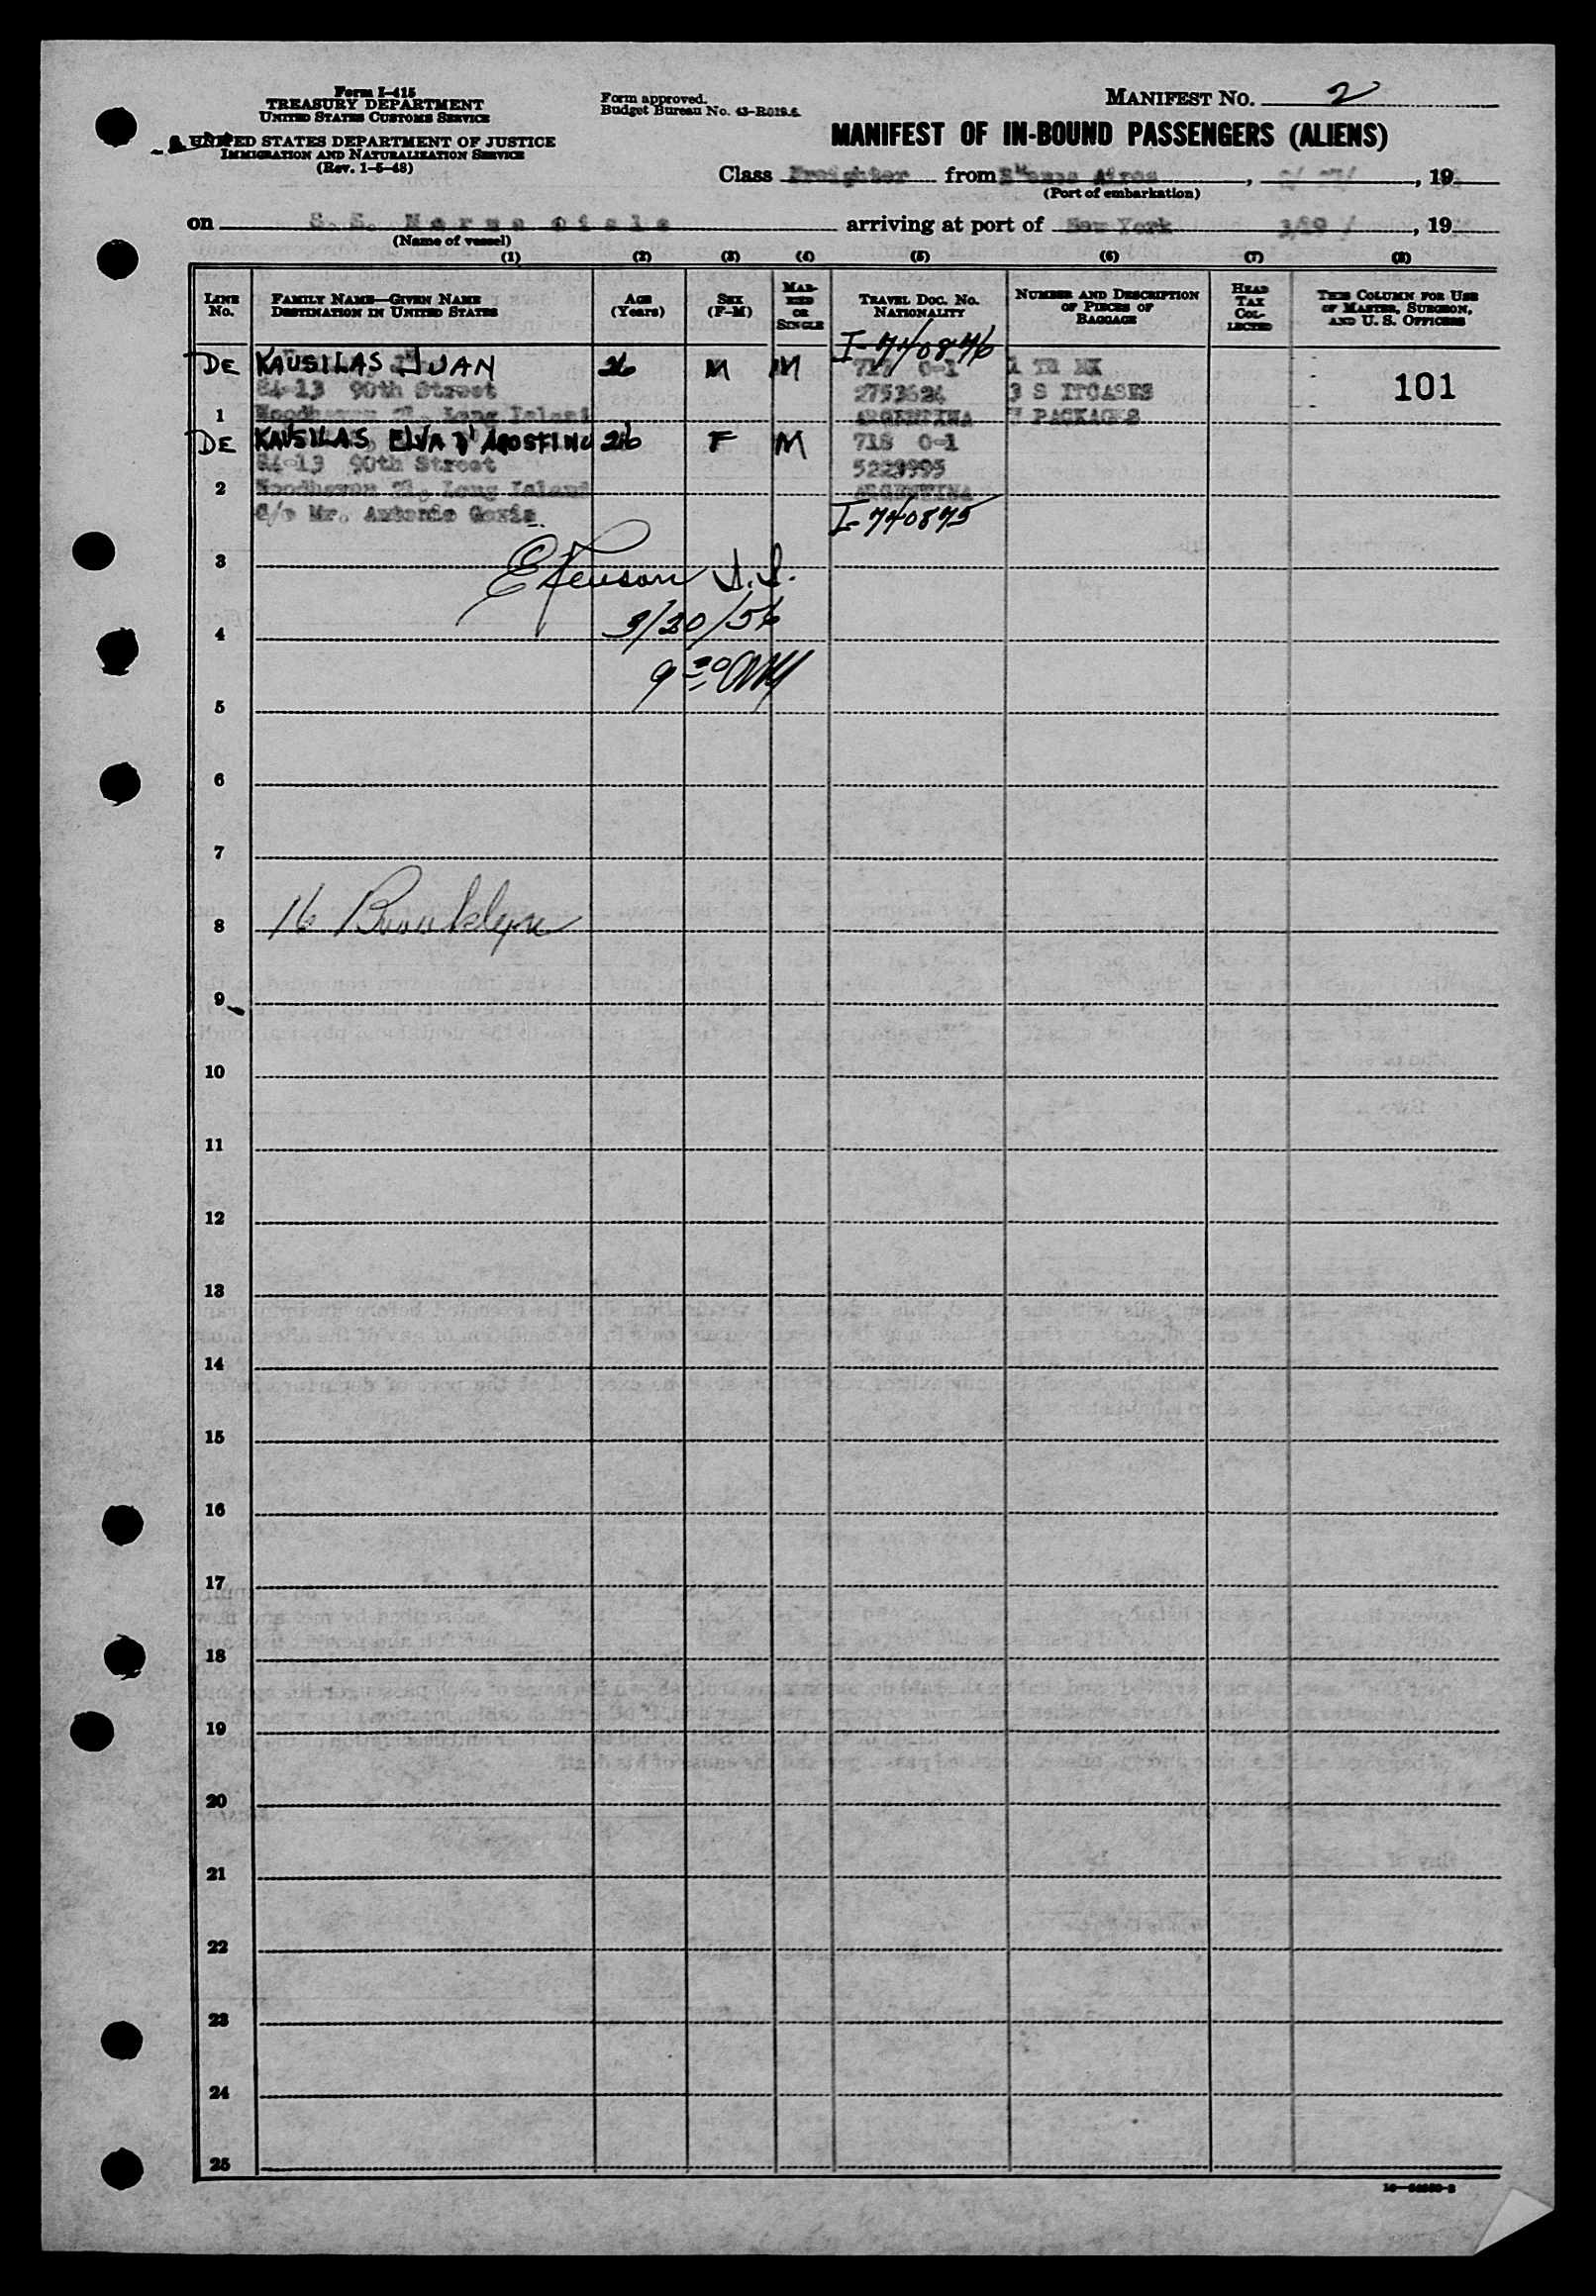 Form I-415
TREASURY DEPARTMENT
UNITED STATES CUSTOMS SERVICE
UNITED STATES DEPARTMENT OF JUSTICE
IMMIGRATION AND NATURALIZATION SERVICE
(Rev. 1-5-48)
Form approved.
Budget Bureau No. 43-R019.5.
MANIFEST NO. 2
MANIFEST OF IN-BOUND PASSENGERS (ALIENS)
Class Freighter from Buenos Aires , 19
(Port of embarkation)
on S. S. arriving at port of New York 3/19 / , 19
(Name of vessel)
(1) (2) (3) (4) (5) (6) (7) (8)
LINE No.
FAMILY NAME—GIVEN NAME
DESTINATION IN UNITED STATES
AGE
(Years)
SEX
(F-M)
MARRIED OR SINGLE
TRAVEL DOC. NO.
NATIONALITY
NUMBER AND DESCRIPTION
OF PIECES OF
BAGGAGE
HEAD TAX COLLECTED
THIS COLUMN FOR USE
OF MASTER, SURGEON,
AND U. S. OFFICERS
I-740876
DE KAUSILAS JUAN 26 M M 0-1 1
84-13 90th Street 2753624 3 S ITCASES 101
1 Woodhaven 21, Long Island ARGENTINA PACKAGES
DE KAUSILAS ELVA D'AGOSTINO 26 F M 718 0-1
84-13 90th Street 5229995
2 Woodhaven 21, Long Island ARGENTINA
c/o Mr. Antonio I-740875
3 I.I.
4 3/20/56
5 9 30 AM
6
7
8 16 Brooklyn
9
10
11
12
13
14
15
16
17
18
19
20
21
22
23
24
25